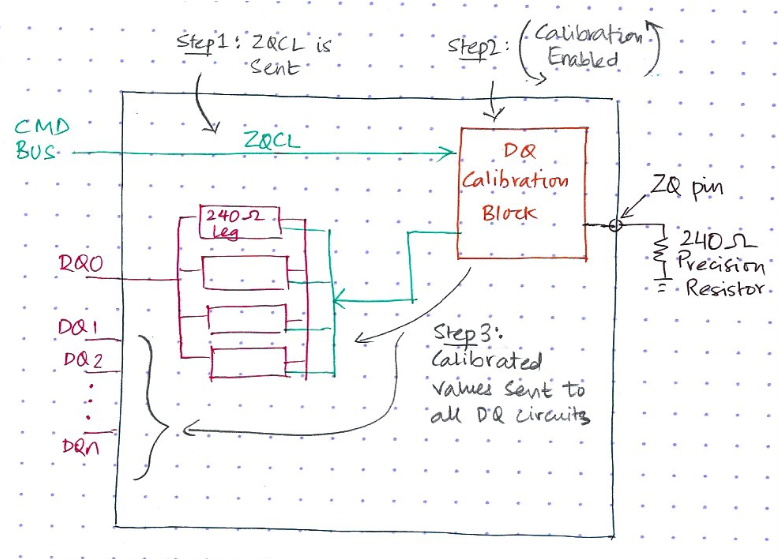 Step1: ZQCL is
Sent
Step2: (Calibration
Enabled)
CMD
BUS
ZQCL
DQ
Calibration
Block
ZQ pin
240Ω
Leg
240Ω
Precision
Resistor
DQ0
DQ1
DQ2
DQn
Step3:
Calibrated
values sent to
all DQ circuits